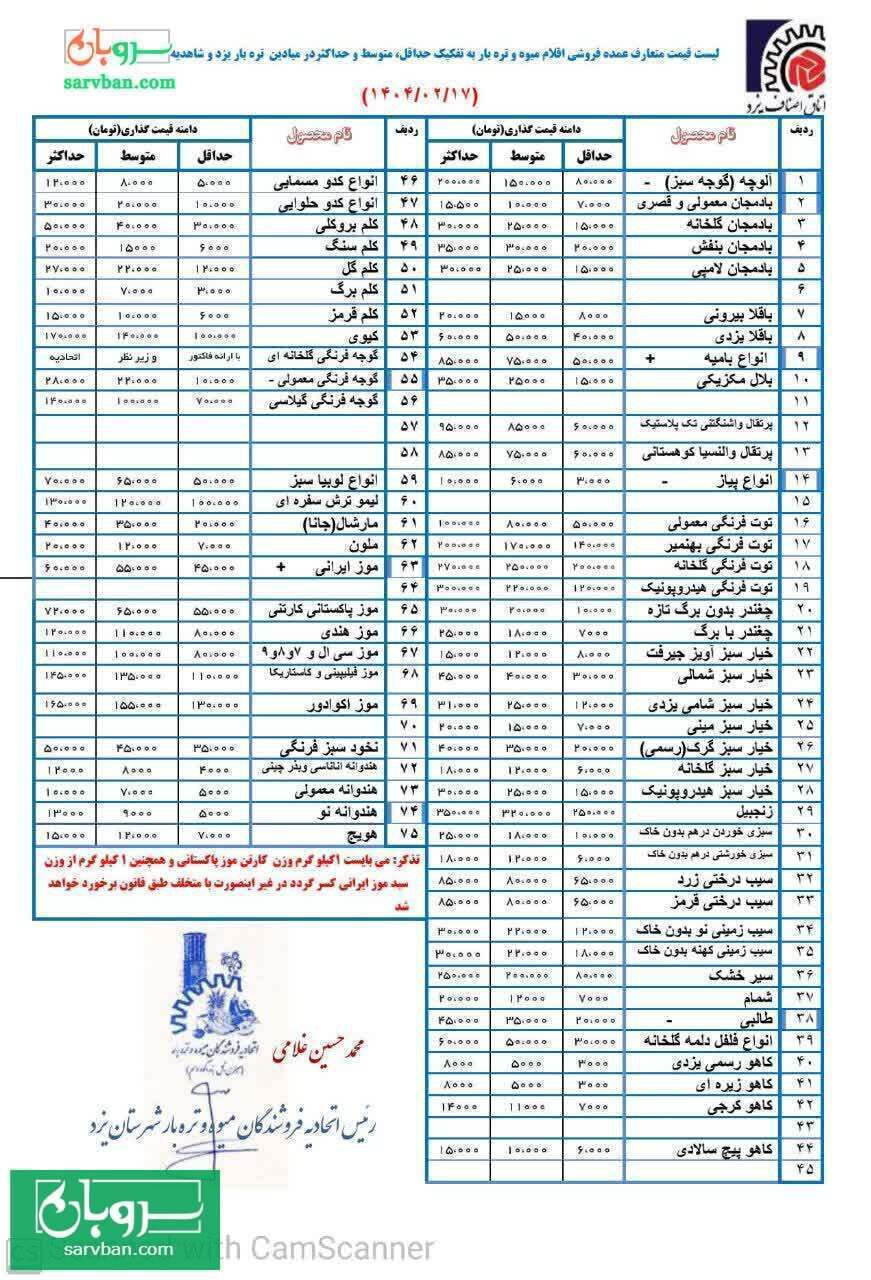 سروبان
sarvban.com
لیست قیمت متعارف عمده فروشی اقلام میوه و تره بار به تفکیک حداقل، متوسط و حداکثردر میادین تره بار یزد و شاهدیه
(۱۴۰۴/۰۲/۱۷)
اتاق اصناف یزد
ردیف نام محصول دامنه قیمت گذاری(تومان)
حداقل متوسط حداکثر
۱ آلوچه (گوجه سبز) - ۸۰،۰۰۰ ۱۵۰،۰۰۰ ۲۰۰،۰۰۰
۲ بادمجان معمولی و قصری ۷،۰۰۰ ۱۰،۰۰۰ ۱۵،۵۰۰
۳ بادمجان گلخانه ۱۵،۰۰۰ ۲۵،۰۰۰ ۳۰،۰۰۰
۴ بادمجان بنفش ۲۰،۰۰۰ ۳۰،۰۰۰ ۳۵،۰۰۰
۵ بادمجان لامپی ۱۵،۰۰۰ ۲۵،۰۰۰ ۳۰،۰۰۰
۶
۷ باقلا بیرونی ۸۰۰۰ ۱۵۰۰۰ ۲۰،۰۰۰
۸ باقلا یزدی ۴۰،۰۰۰ ۵۰،۰۰۰ ۶۰،۰۰۰
۹ انواع بامیه + ۵۰،۰۰۰ ۷۵،۰۰۰ ۸۵،۰۰۰
۱۰ بلال مکزیکی ۱۵،۰۰۰ ۲۵۰۰۰ ۳۵،۰۰۰
۱۱
۱۲ پرتقال واشنگتنی تک پلاستیک ۶۰،۰۰۰ ۸۵۰۰۰ ۹۵،۰۰۰
۱۳ پرتقال والنسیا کوهستانی ۶۰،۰۰۰ ۷۵،۰۰۰ ۸۵،۰۰۰
۱۴ انواع پیاز - ۳،۰۰۰ ۶،۰۰۰ ۱۰،۰۰۰
۱۵
۱۶ توت فرنگی معمولی ۵۰،۰۰۰ ۸۰،۰۰۰ ۱۰۰،۰۰۰
۱۷ توت فرنگی بهنمیر ۱۴۰،۰۰۰ ۱۷۰،۰۰۰ ۲۰۰،۰۰۰
۱۸ توت فرنگی گلخانه ۲۰۰،۰۰۰ ۲۵۰،۰۰۰ ۲۷۰،۰۰۰
۱۹ توت فرنگی هیدروپونیک ۱۲۰،۰۰۰ ۲۲۰،۰۰۰ ۳۰۰،۰۰۰
۲۰ چغندر بدون برگ تازه ۱۰،۰۰۰ ۲۰،۰۰۰ ۳۰،۰۰۰
۲۱ چغندر با برگ ۷۰۰۰ ۱۸،۰۰۰ ۲۵،۰۰۰
۲۲ خیار سبز آویز جیرفت ۸،۰۰۰ ۱۲،۰۰۰ ۱۵،۰۰۰
۲۳ خیار سبز شمالی ۳۰،۰۰۰ ۴۰،۰۰۰ ۴۵،۰۰۰
۲۴ خیار سبز شامی یزدی ۱۲،۰۰۰ ۲۵،۰۰۰ ۳۱،۰۰۰
۲۵ خیار سبز مینی ۷،۰۰۰ ۱۵،۰۰۰ ۲۰،۰۰۰
۲۶ خیار سبز گرک(رسمی) ۲۰،۰۰۰ ۳۵،۰۰۰ ۴۰،۰۰۰
۲۷ خیار سبز گلخانه ۶،۰۰۰ ۱۲،۰۰۰ ۱۸،۰۰۰
۲۸ خیار سبز هیدروپونیک ۱۵،۰۰۰ ۲۵،۰۰۰ ۳۰،۰۰۰
۲۹ زنجبیل ۲۵۰،۰۰۰ ۳۲۰،۰۰۰ ۳۵۰،۰۰۰
۳۰ سبزی خوردن درهم بدون خاک ۱۰،۰۰۰ ۱۸،۰۰۰ ۲۵،۰۰۰
۳۱ سبزی خورشتی درهم بدون خاک ۶،۰۰۰ ۱۲،۰۰۰ ۱۸،۰۰۰
۳۲ سیب درختی زرد ۶۵،۰۰۰ ۸۰،۰۰۰ ۸۵،۰۰۰
۳۳ سیب درختی قرمز ۶۵،۰۰۰ ۸۰،۰۰۰ ۸۵،۰۰۰
۳۴ سیب زمینی نو بدون خاک ۱۲،۰۰۰ ۲۲،۰۰۰ ۳۰،۰۰۰
۳۵ سیب زمینی کهنه بدون خاک ۱۸،۰۰۰ ۲۲،۰۰۰ ۳۰،۰۰۰
۳۶ سیر خشک ۸۰،۰۰۰ ۲۰۰،۰۰۰ ۲۵۰،۰۰۰
۳۷ شمام ۷۰۰۰ ۱۲۰۰۰ ۲۰،۰۰۰
۳۸ طالبی - ۲۰،۰۰۰ ۳۵،۰۰۰ ۴۵،۰۰۰
۳۹ انواع فلفل دلمه گلخانه ۳۰،۰۰۰ ۵۰،۰۰۰ ۶۰،۰۰۰
۴۰ کاهو رسمی یزدی ۳۰۰۰ ۵۰۰۰ ۸۰۰۰
۴۱ کاهو زیره ای ۳۰۰۰ ۵۰۰۰ ۸۰۰۰
۴۲ کاهو کرجی ۷۰۰۰ ۱۱۰۰۰ ۱۴۰۰۰
۴۳
۴۴ کاهو پیچ سالادی ۶،۰۰۰ ۱۰،۰۰۰ ۱۵،۰۰۰
۴۵
ردیف نام محصول دامنه قیمت گذاری(تومان)
حداقل متوسط حداکثر
۴۶ انواع کدو مسمایی ۵،۰۰۰ ۸،۰۰۰ ۱۲،۰۰۰
۴۷ انواع کدو حلوایی ۱۰،۰۰۰ ۲۰،۰۰۰ ۳۰،۰۰۰
۴۸ کلم بروکلی ۳۰،۰۰۰ ۴۰،۰۰۰ ۵۰،۰۰۰
۴۹ کلم سنگ ۶۰۰۰ ۱۵۰۰۰ ۲۰،۰۰۰
۵۰ کلم گل ۱۲،۰۰۰ ۲۲،۰۰۰ ۲۷،۰۰۰
۵۱ کلم برگ ۳،۰۰۰ ۷،۰۰۰ ۱۰،۰۰۰
۵۲ کلم قرمز ۶۰۰۰ ۱۰،۰۰۰ ۱۵،۰۰۰
۵۳ کیوی ۱۰۰،۰۰۰ ۱۴۰،۰۰۰ ۱۷۰،۰۰۰
۵۴ گوجه فرنگی گلخانه ای با ارائه فاکتور و زیر نظر اتحادیه
۵۵ گوجه فرنگی معمولی - ۱۰،۰۰۰ ۲۲،۰۰۰ ۲۸،۰۰۰
۵۶ گوجه فرنگی گیلاسی ۷۰،۰۰۰ ۱۰۰،۰۰۰ ۱۴۰،۰۰۰
۵۷
۵۸
۵۹ انواع لوبیا سبز ۵۰،۰۰۰ ۶۵،۰۰۰ ۷۰،۰۰۰
۶۰ لیمو ترش سفره ای ۱۰۰،۰۰۰ ۱۲۰،۰۰۰ ۱۳۰،۰۰۰
۶۱ مارشال(جانا) ۲۰،۰۰۰ ۳۵،۰۰۰ ۴۰،۰۰۰
۶۲ ملون ۷،۰۰۰ ۱۲،۰۰۰ ۲۰،۰۰۰
۶۳ موز ایرانی + ۴۵،۰۰۰ ۵۵،۰۰۰ ۶۰،۰۰۰
۶۴
۶۵ موز پاکستانی کارتنی ۵۵،۰۰۰ ۶۵،۰۰۰ ۷۲،۰۰۰
۶۶ موز هندی ۸۰،۰۰۰ ۱۱۰،۰۰۰ ۱۲۰،۰۰۰
۶۷ موز سی ال و ۷و۸و۹ ۸۰،۰۰۰ ۱۰۰،۰۰۰ ۱۱۰،۰۰۰
۶۸ موز فیلیپینی و کاستاریکا ۱۱۰،۰۰۰ ۱۳۵،۰۰۰ ۱۴۵،۰۰۰
۶۹ موز اکوادور ۱۳۰،۰۰۰ ۱۵۵،۰۰۰ ۱۶۵،۰۰۰
۷۰
۷۱ نخود سبز فرنگی ۳۵،۰۰۰ ۴۵،۰۰۰ ۵۰،۰۰۰
۷۲ هندوانه اناناسی وبذر چینی ۴۰۰۰ ۸۰۰۰ ۱۲۰۰۰
۷۳ هندوانه معمولی ۵۰۰۰ ۷،۰۰۰ ۱۰،۰۰۰
۷۴ هندوانه نو ۵۰۰۰ ۹۰۰۰ ۱۳۰۰۰
۷۵ هویج ۷،۰۰۰ ۱۲،۰۰۰ ۱۵،۰۰۰
تذکر: می بایست ۱کیلو گرم وزن کارتن موز پاکستانی و همچنین ۱ کیلو گرم از وزن
سبد موز ایرانی کسر گردد در غیر اینصورت با متخلف طبق قانون برخورد خواهد
شد
اتحادیه فروشندگان میوه و تره بار
محمد حسین غلامی
رئیس اتحادیه فروشندگان میوه و تره بار شهرستان یزد
سروبان
sarvban.com
CS with CamScanner